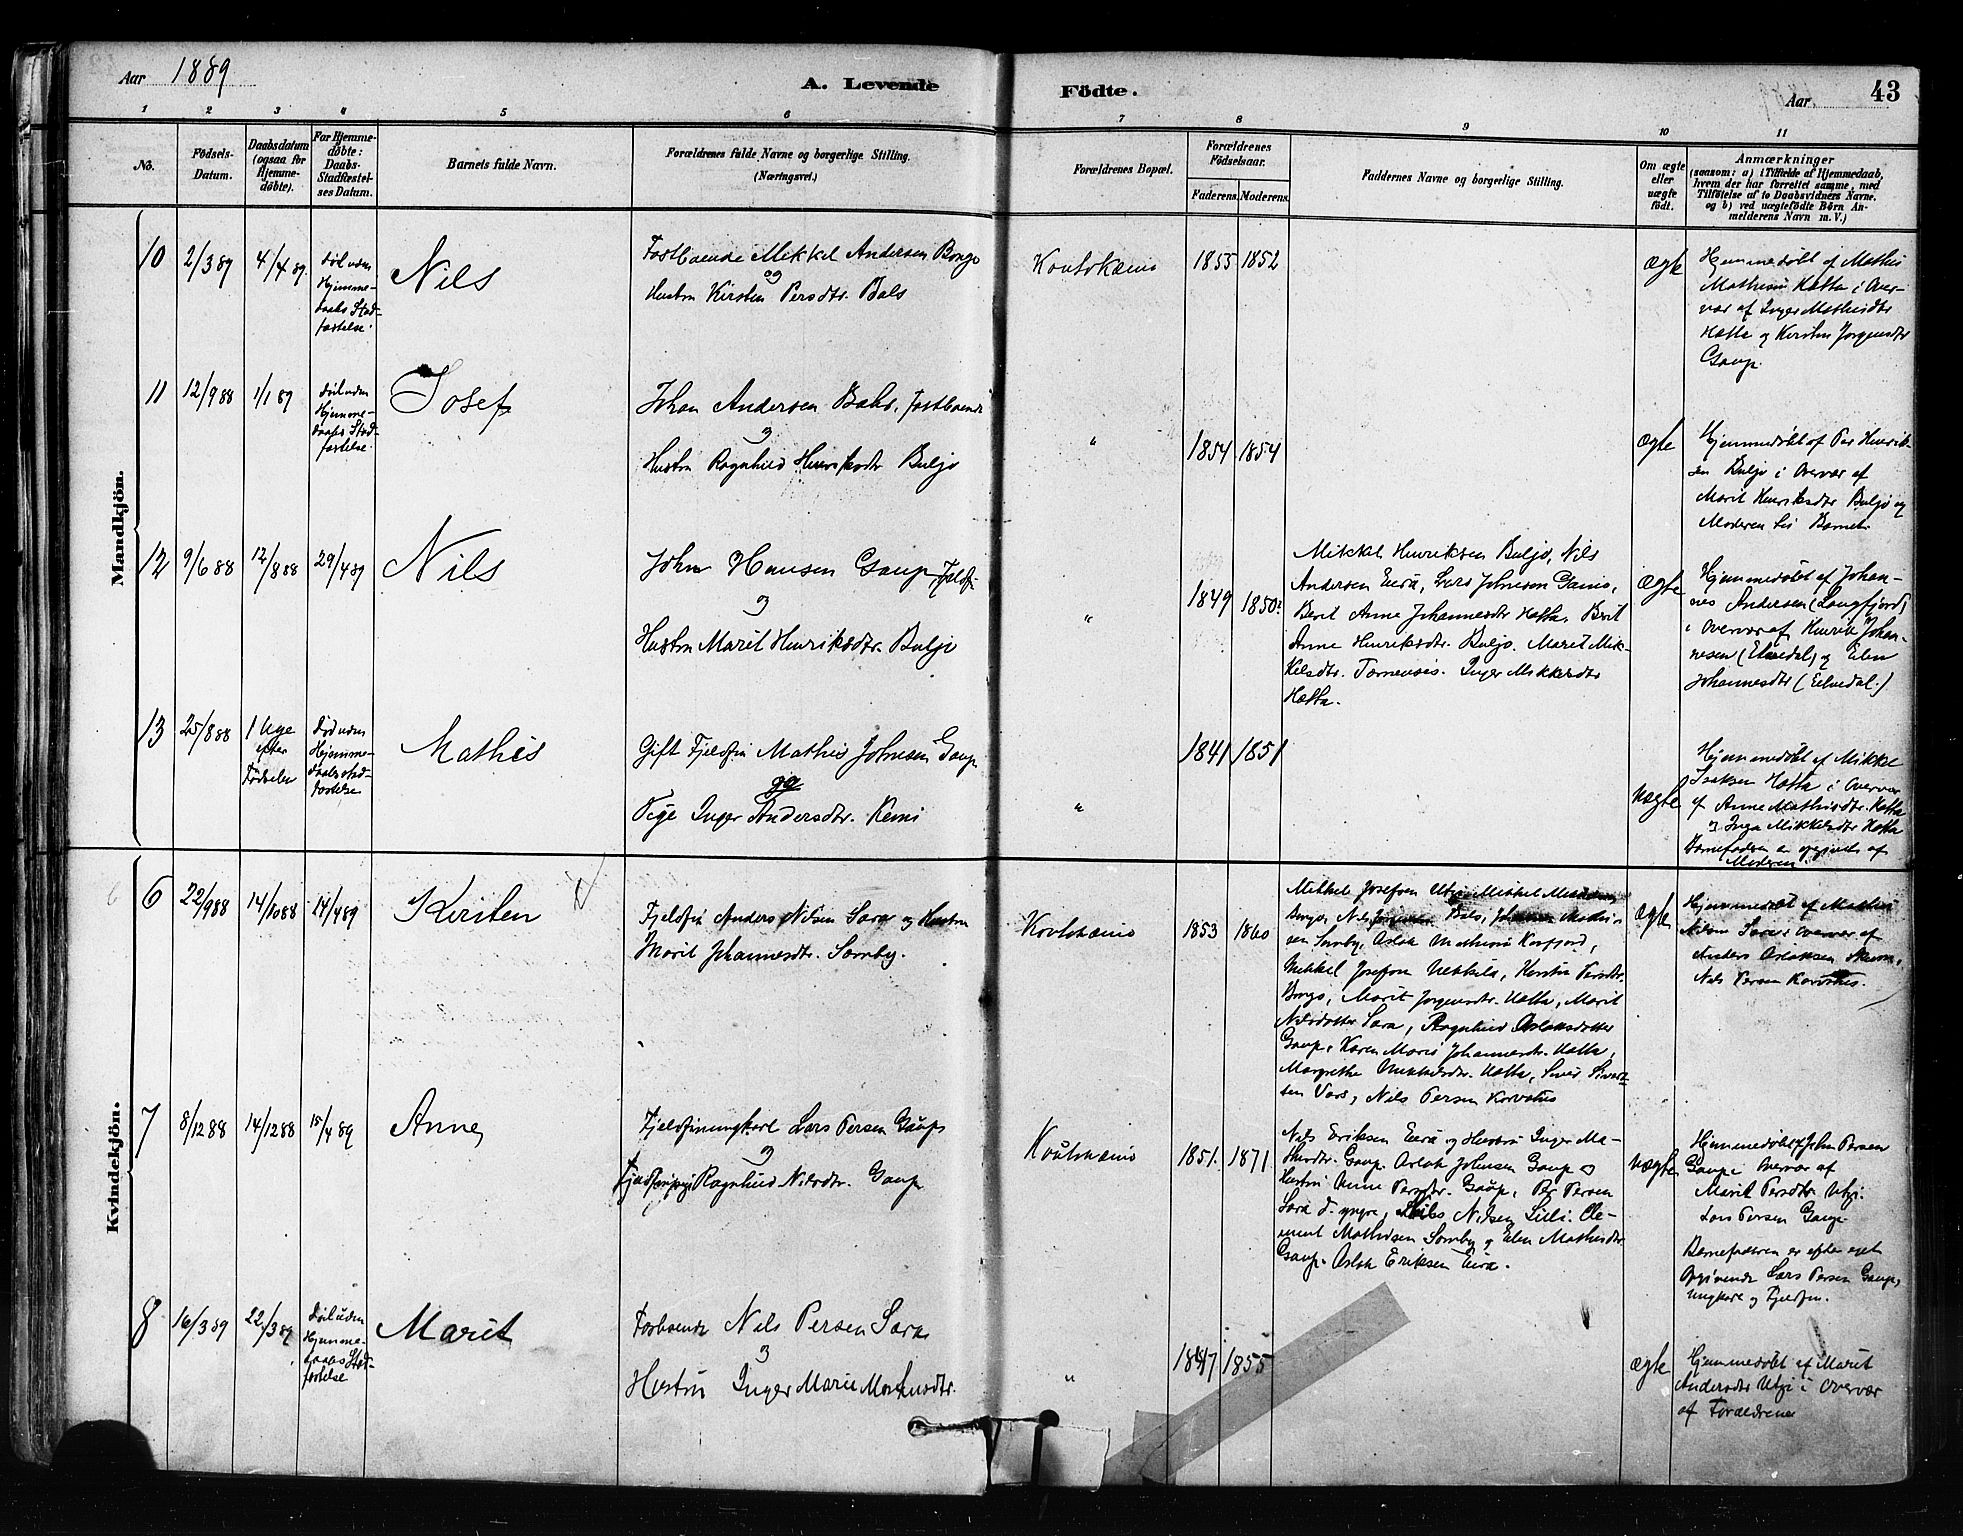 Aar 1889
A. Levende
Födte.
Aar
43
1 2 3 4 5 6 7 8 9 10 11
No.
Fødsels-
Datum.
Daabsdatum
(ogsaa for
Hjemme-
døbte).
For Hjemme-
døbte:
Daabs-
Stadfæstel-
ses Datum.
Barnets fulde Navn.
Forældrenes fulde Navne og borgerlige Stilling.
(Næringsvei.)
Forældrenes Bopæl.
Forældrenes
Födselsaar.
Faderens. Moderens.
Faddernes Navne og borgerlige Stilling.
Om ægte
eller
uægte
födt.
Anmærkninger
(saasom: a) i Tilfælde af Hjemmedaab,
hvem der har forrettet samme, med
Tilföielse af to Daabsvidners Navne.
og b) ved uægtefödte Börn An-
melderens Navn m. V.)
Mandkjön.
10 2/3 89 4/4 89.
död uden
Hjemme-
daabs Stad-
fæstelse.
Nils
Fastboende Mikkel Andersen Bongo
og
Hustru Kirsten Persdtr. Bals
Koutokæino
1855 1852
ægte
Hjemmedøbt af Mathis
Mathisen Hætta i Over-
vær af Inger Mathisdtr
Hætta og Kirsten Jørgensdtr
Gaup.
11 12/9 88 1/1 89
död uden
Hjemme-
daabs Stad-
fæstelse.
Josef
Johan Andersen Bahr, Fastboende
og
Hustru Ragnhild Henriksdtr Buljo
"
1854 1854
ægte
Hjemmedöbt af Per Henrik-
sen Buljo i Overvær af
Marit Henriksdtr Buljo og
Moderen til Barnet.
12 9/6 88 12/8 88 29/4 89
Nils
John Hansen Gaup Fjeldfi-
og
Hustru Marit Henriksdtr. Buljo
"
1849 1850?
Mikkel Henriksen Buljo, Nils
Andersen Eira, Lars Johnsen Gaino,
Berit Anne Johannesdtr Hætta. Berit
Anne Henriksdtr. Buljo. Marit Mik-
kelsdtr. Torneusis. Inger Mikkelsdtr
Hætta.
ægte
Hjemmedöbt af Johan-
nes Andersen (Langfjord)
i Overvær af Henrik Johan-
nesen (Elvedal) og Elen
Johannesdtr (Elvedal.)
13 25/8 88
1 Uge
efter
Födselen
Död uden
Hjemme-
daabs stad-
fæstelse
Mathis
Gift Fjeldfin Mathis Johnsen Gaup
og
Pige Inger Andersdtr. Kemi
"
1841 1851
uægte
Hjemmedöbt af Mikkel
Isaksen Hætta i Overvær
af Anne Mathisdtr. Hætta
og Inga Mikkelsdtr Hætta
Barnefaderen er opgivet af
Moderen.
Kvindekjön.
6 22/9 88 14/10 88 14/4 89
Kirsten
Fjeldfin Anders Nilsen Sara og Hustru
Marit Johannesdtr. Somby.
Koutokæino
1853 1860
Mikkel Josefsen Utsi Mikkel
Bongo, Nils Bals, Mathis-
sen Somby, Aslak Mathisen Kosfjord,
Mikkel Josefsen Nekkela, Kerstin Persdtr.
Bongo, Marit Jorgensdtr. Hætta, Marit
Nilsdatter Sara, Ragnhild Aslaksdatter
Gaup, Karen Maris Johannesdtr. Hætta,
Margrethe Mikkelsdtr. Hætta, Siver Sivert-
sen Vars, Nils Persen Korvatus
ægte
Hjemmedöbt af Mathis
Nilsen Sara i Overvær af
Anders Aslaksen
Nils Persen Korvatus.
7 8/12 88 14/12 88 15/4 89
Anne
Fjeldfinungkarl Lars Persen Gaup
og
Fjeldfinpige Ragnhild Nilsdtr. Gaup
Koutokæino
1851. 1871
Nils Eriksen Eira og Hustru Inger Ma-
thisdtr. Gaup. Aslak Johnsen Gaup og
Hustru Anne Persdtr. Gaup, Per Persen
Sara d. yngre, Nils Nilsen Siri. Cle-
ment Mathisen Somby og Elen Mathisdtr
Gaup. Aslak Eriksen Eira.
uægte
Hjemmedöbt af John Persen
Gaup i Overvær af
Marit Persdtr. Utsi.
Lars Persen Gaup
Barnefaderen er efter eget
Opgivende Lars Persen Gaup,
ungkarl og Fjeldfin.
8 16/3 89 22/3 89
Död uden
Hjemme-
daabs Stad-
fæstelse
Marit
Fastboende Nils Persen Sara
og
Hustru Inger Marie Mortensdtr.
"
1847 1855
ægte
Hjemmedöbt af Marit
Andersdtr Utsi i Overvær
af Forældrene